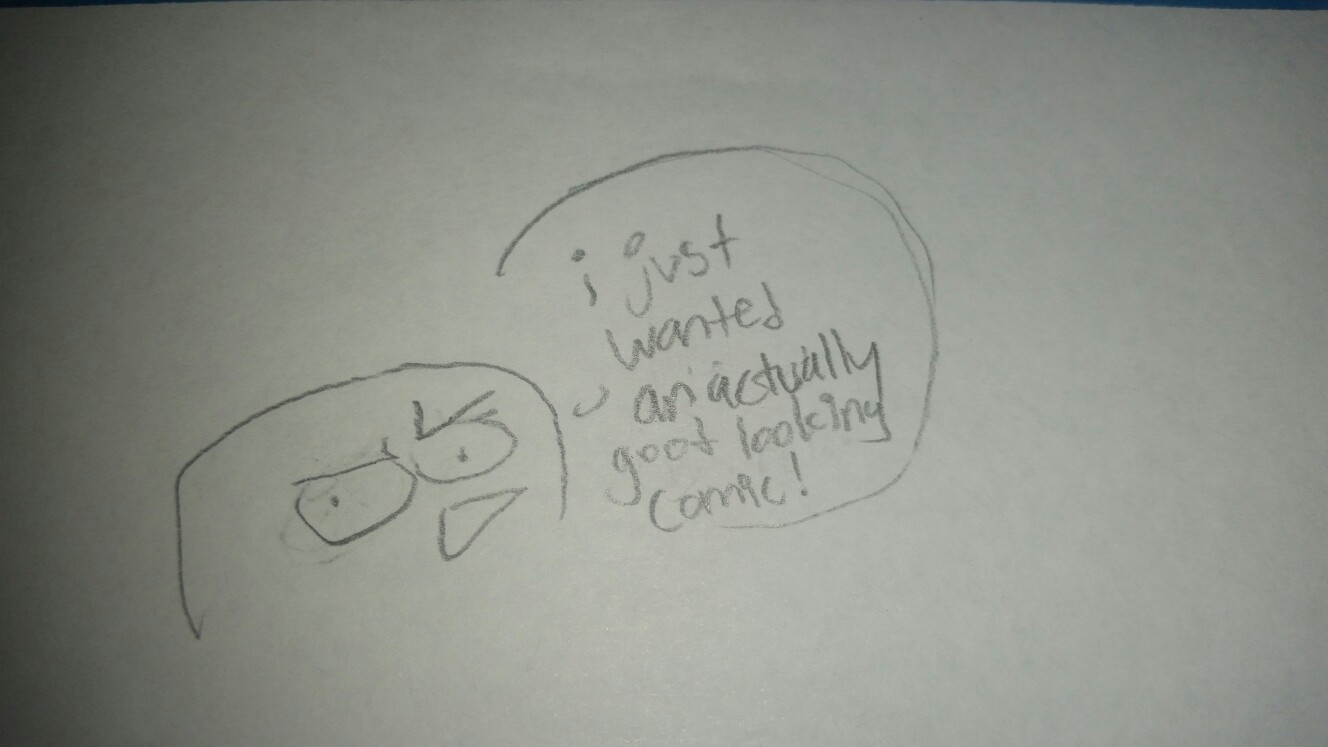 i just
wanted
an actually
good looking
comic!